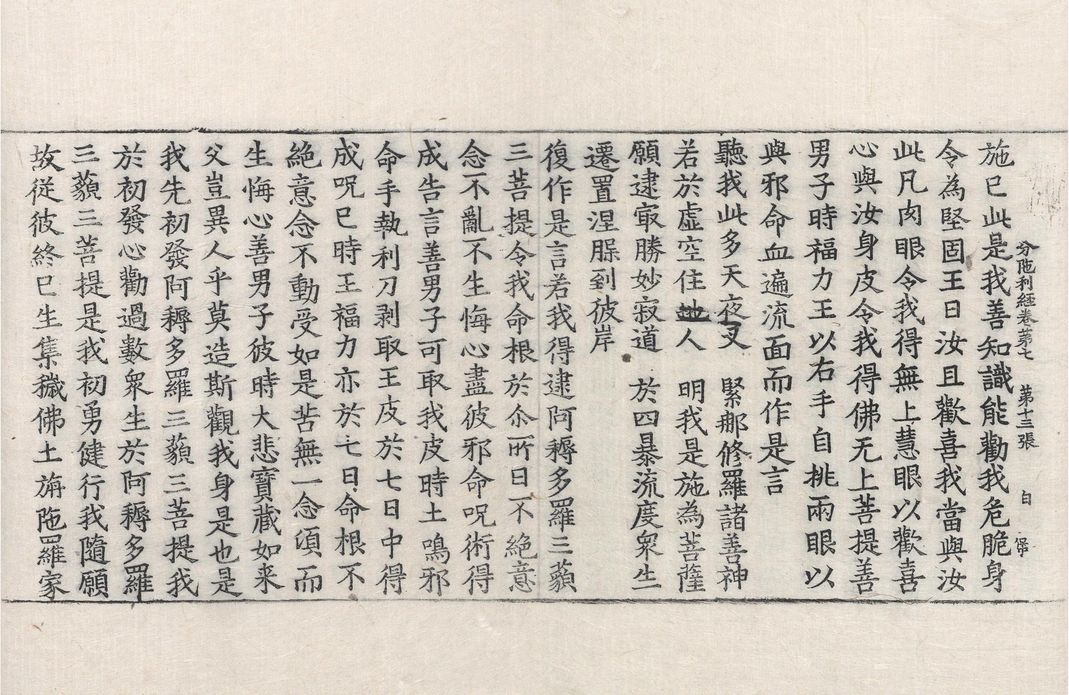 分陁利經卷苐七　苐十三張　白
施已此是我善知識能勸我危脆身
令為堅固王曰汝且歡喜我當與汝
此凡肉眼令我得無上慧眼以歡喜
心與汝身皮令我得佛无上菩提善
男子時福力王以右手自挑兩眼以
與邪命血遍流面而作是言
聽我此多天夜叉　緊那修羅諸善神
若於虛空住地人　明我是施為菩薩
願逮㝡勝妙寂道　於四暴流度衆生
遷置涅縣到彼岸
復作是言若我得逮阿耨多羅三藐
三菩提令我命根於尒所日不絕意
念不亂不生悔心盡彼邪命呪術得
成告言善男子可取我皮時土鳴邪
命手執利刀剥取王皮於七日中得
成呪已時王福力亦於七日命根不
絕意念不動受如是苦無一念頃而
生悔心善男子彼時大悲寶藏如来
父豈異人乎莫造斯觀我身是也是
我先初發阿耨多羅三藐三菩提我
於初發心勸過數衆生於阿耨多羅
三藐三菩提是我初勇健行我隨願
故從彼終已生集穢佛土旃陁羅家